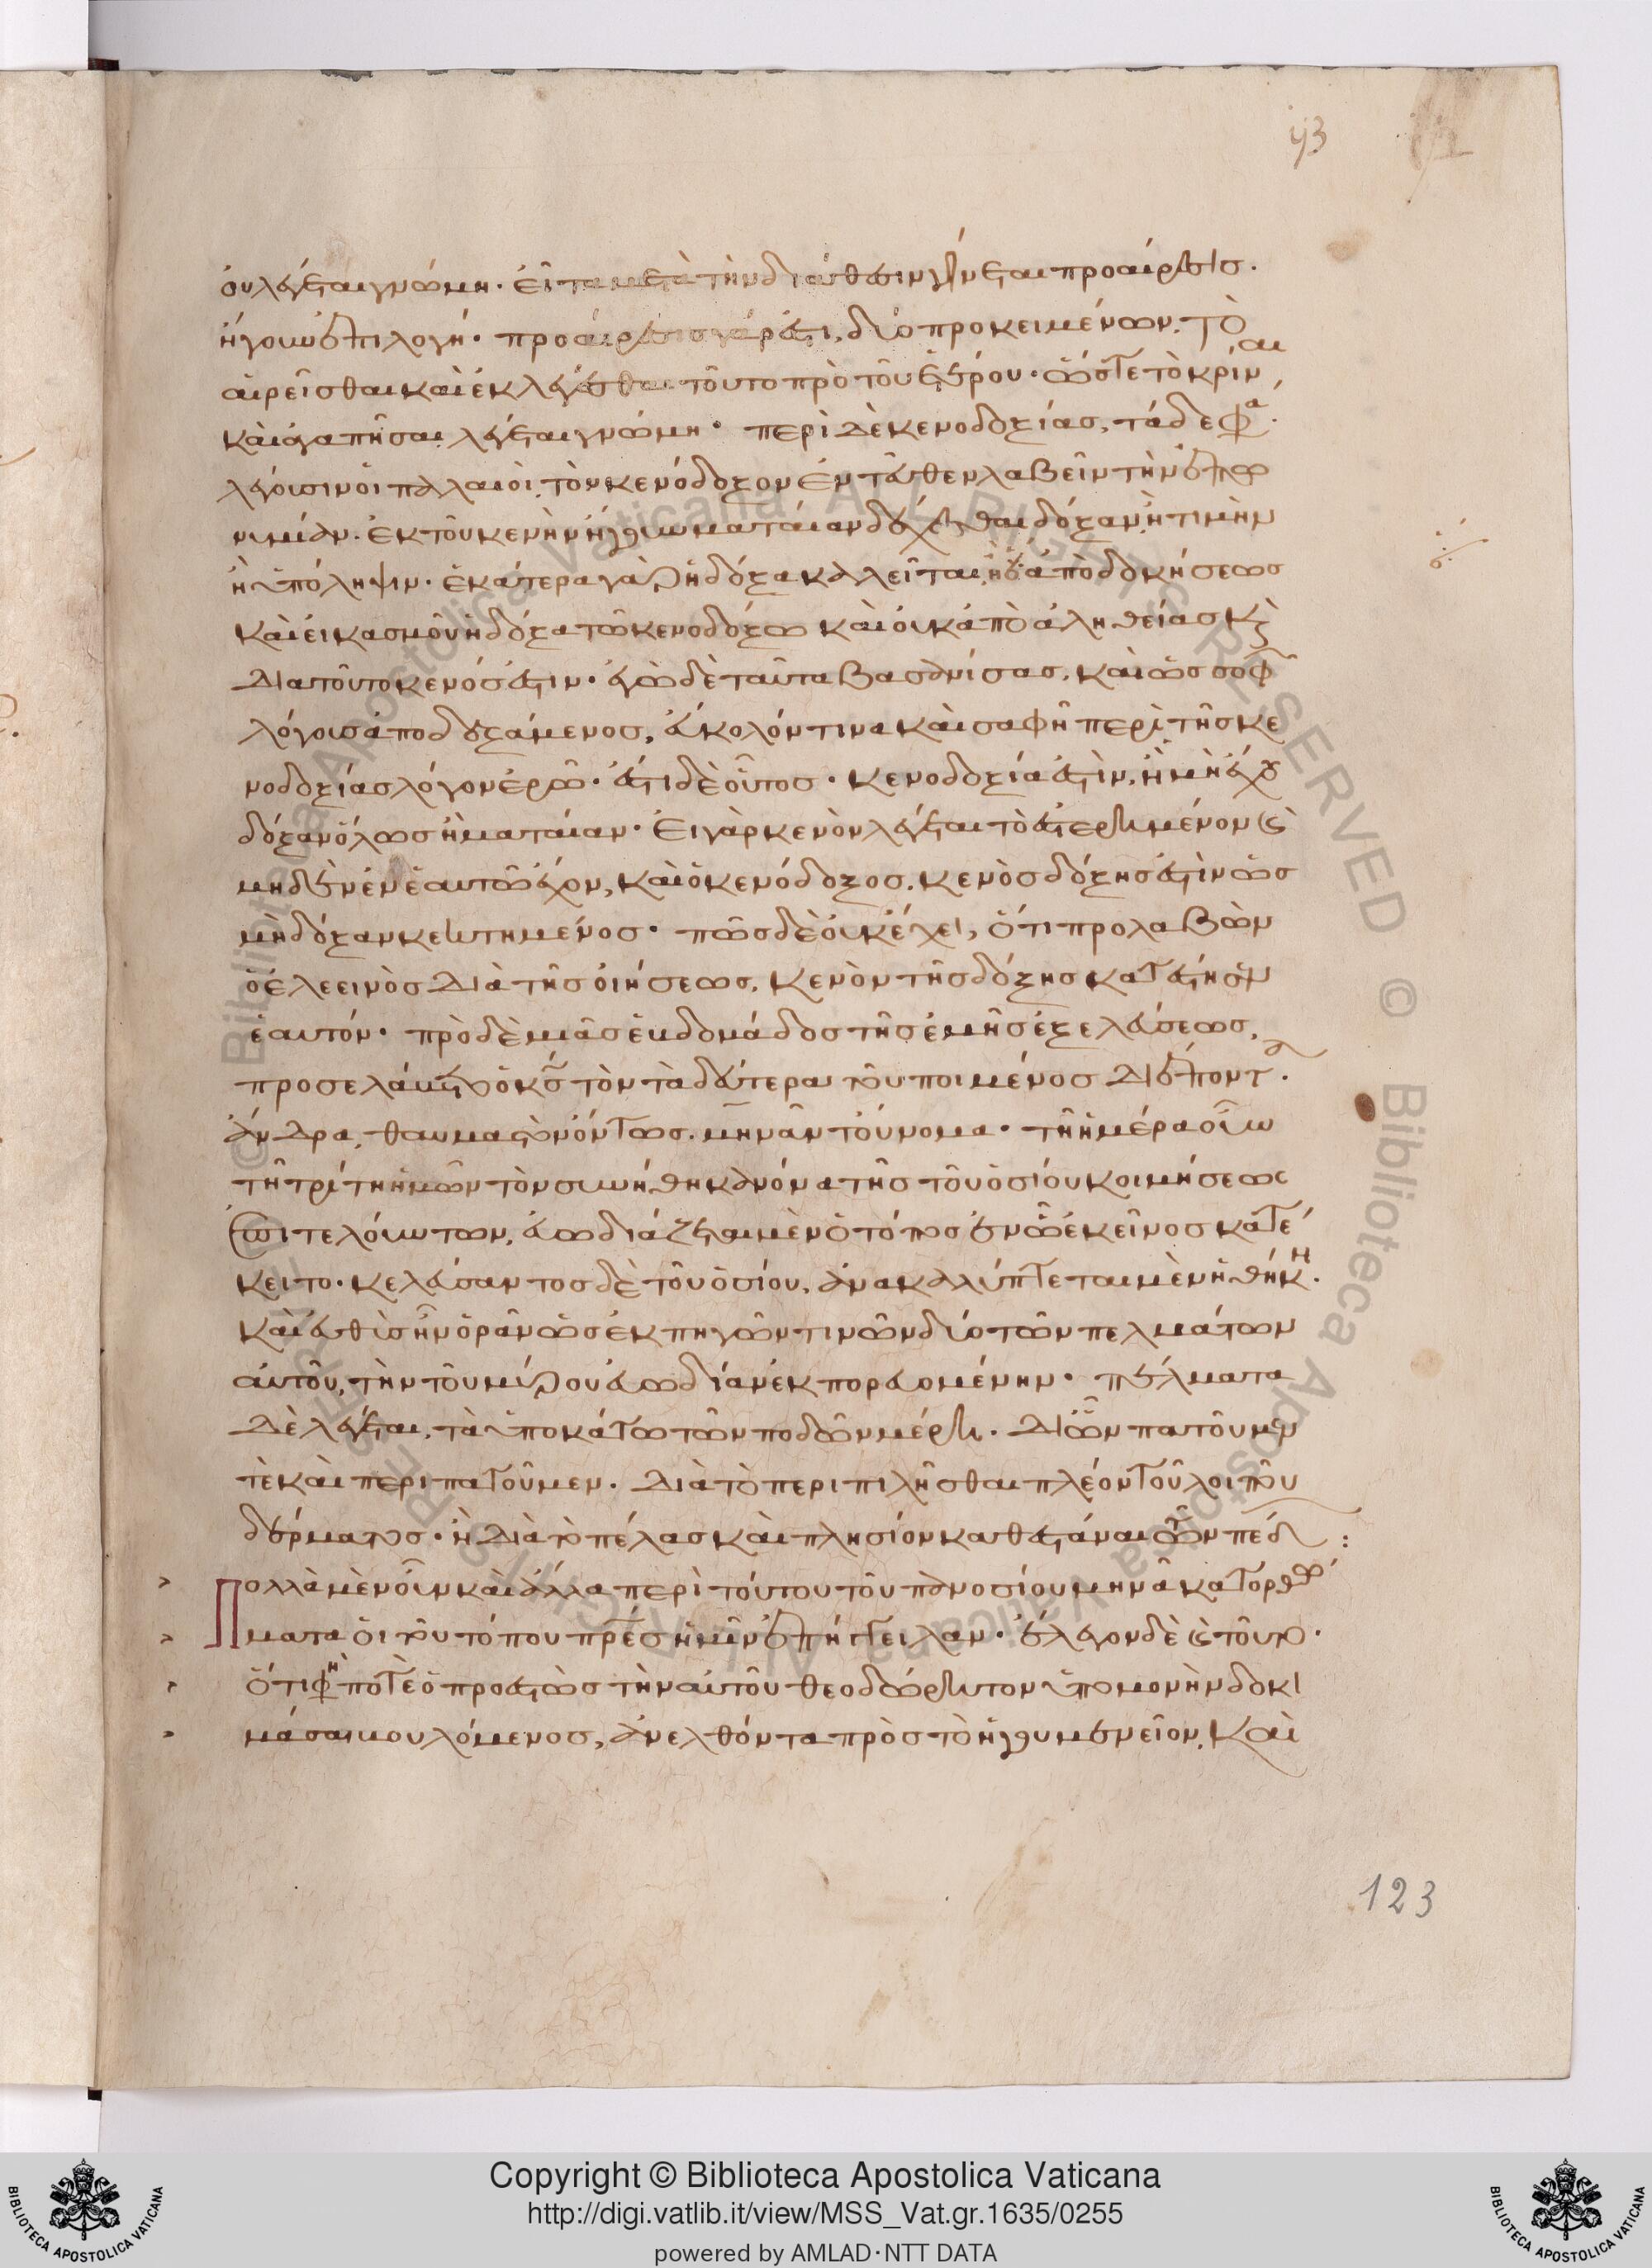 93
οὐ λέγεται γνώμη· εἶτα μετὰ τὴν διάθεσιν γίνεται προαίρεσις·
ἤγουν ἐπιλογή· προαίρεσις γάρ ἐστι, δύο προκειμένων, τὸ
αἱρεῖσθαι καὶ ἐκλέγεσθαι τοῦτο πρὸ τοῦ ἑτέρου· ὥστε τὸ κρίναι
καὶ ἀγαπῆσαι, λέγεται γνώμη· περὶ δὲ κενοδοξίας, τάδε φα·
λέγουσιν οἱ παλαιοὶ, τὸν κενόδοξον ἐντεῦθεν λαβεῖν τὴν ἐπω
νυμίαν· ἐκ τοῦ κενὴν ἤγουν ματαίαν δέχεσθαι δόξαν, ἢ τιμὴν
ἢ ὑπόληψιν· ἑκάτερα γὰρ ἡ δόξα καλεῖται, ἀπὸ δοκήσεως
καὶ εἰκασμοῦ ἡ δόξα τῶ κενοδόξω καὶ οὐκ ἀπὸ ἀληθείας κ
διατοῦτο κενός ἐστιν· ἐγὼ δὲ ταῦτα βασανίσας, καὶ ὡς σοφ
λόγους ἀποδεξάμενος, εὔκολόν τινα καὶ σαφῆ περὶ τῆς κε
νοδοξίας λόγον ἐρῶ· ἔστι δὲ οὗτος· κενοδοξία ἐστὶν, ἡ μὴ ἔχου
δόξαν ὅλως ἢ ματαίαν· εἰ γὰρ κενὸν λέγεται τὸ ἐστερημένον ϛ
μηδὲν ἐν ἑαυτῶ ἔχον, καὶ ὁ κενόδοξος, κενὸς δόξης ἐστὶν ὡς
μὴ δόξαν κεκτημένος· πῶς δὲ οὐκ ἔχει, ὅτι προλαβὼν
ὁ ἐλεεινὸς διὰ τῆς οἰήσεως, κενὸν τῆς δόξης κατέστησεν
ἑαυτόν· πρὸ δὲ μιᾶς ἑβδομάδος τῆς ἐμῆς ἐξελεύσεως,
προσελάβετο ὁ κς τὸν τὰ δεύτερα τοῦ ποιμένος διέποντ·
ἄνδρα, θαυμαστὸν ὄντως, μηνᾶν τοὔνομα· τῆ ἡμέρα οὖν
τῆ τρίτη ἡμῶν τὸν συνήθη κανόνα τῆς τοῦ ὁσίου κοιμήσεως
ἐπιτελούντων, εὐωδιάζεται μὲν ὁ τόπος ἐν ὧ ἐκεῖνος κατέ
κειτο· κελεύσαντος δὲ τοῦ ὁσίου, ἀνακαλύπτεται μὲν ἡ θήκη·
καὶ εὐθὺς ἦν ὁρᾶν ὡς ἐκ πηγῶν τινῶν δύο τῶν πελμάτων
αὐτοῦ, τὴν τοῦ μύρου εὐωδίαν ἐκπορευομένην· πέλματα
δὲ λέγεται, τὰ ὑποκάτω τῶν ποδῶν μέρη· δι ὧν πατοῦμεν
τὲ καὶ περιπατοῦμεν· διὰ τὸ περιπιλῆσθαι πλέον τοῦ λοιποῦ
δέρματος· ἢ διὰ τὸ πέλας καὶ πλησίον καθεστάναι τῶν πέδ:
Πολλὰ μὲν οὖν καὶ ἄλλα περὶ τούτου τοῦ πανοσίου μηνᾶ κατορθώ
ματα οἱ τοῦ τόπου πρές ἡμῖν ἐπήγγειλαν· ἔλεγον δὲ ϛ τοῦτο·
ὅτι φη ποτὲ ὁ προεστὼς τὴν αὐτοῦ θεοδώρητον ὑπομονὴν δοκι
μάσαι βουλόμενος, ἀνελθόντα πρὸς τὸ ἡγουμενεῖον, καὶ
123
© Biblioteca Apostolica Vaticana ALL RIGHTS RESERVED
Copyright © Biblioteca Apostolica Vaticana
http://digi.vatlib.it/view/MSS_Vat.gr.1635/0255
powered by AMLAD·NTT DATA
BIBLIOTECA APOSTOLICA VATICANA
BIBLIOTECA APOSTOLICA VATICANA